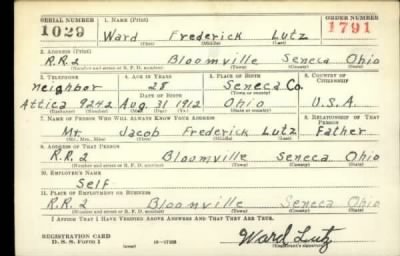 SERIAL NUMBER 1. NAME (Print) ORDER NUMBER
1029 Ward Frederick Lutz 1791
(First) (Middle) (Last)
2. ADDRESS (Print)
R.R.2 Bloomville Seneca Ohio
(Number and street or R. F. D. number) (Town) (County) (State)
3. TELEPHONE 4. AGE IN YEARS 5. PLACE OF BIRTH 6. COUNTRY OF CITIZENSHIP
Neighbor 28 Seneca Co.
DATE OF BIRTH (Town or county)
Attica 9242 Aug. 31 1912 Ohio U.S.A.
7. NAME OF PERSON WHO WILL ALWAYS KNOW YOUR ADDRESS 8. RELATIONSHIP OF THAT PERSON
Mr. Jacob Frederick Lutz Father
(Mr., Mrs., Miss) (First) (Middle) (Last)
9. ADDRESS OF THAT PERSON
R.R.2 Bloomville Seneca Ohio
(Number and street or R. F. D. number) (Town) (County) (State)
10. EMPLOYER'S NAME
Self
11. PLACE OF EMPLOYMENT OR BUSINESS
R.R.2 Bloomville Seneca Ohio
(Number and street or R. F. D. number) (Town) (County) (State)
I AFFIRM THAT I HAVE VERIFIED ABOVE ANSWERS AND THAT THEY ARE TRUE.
REGISTRATION CARD
D. S. S. FORM 1 (over) Ward Lutz
(Registrant's signature)